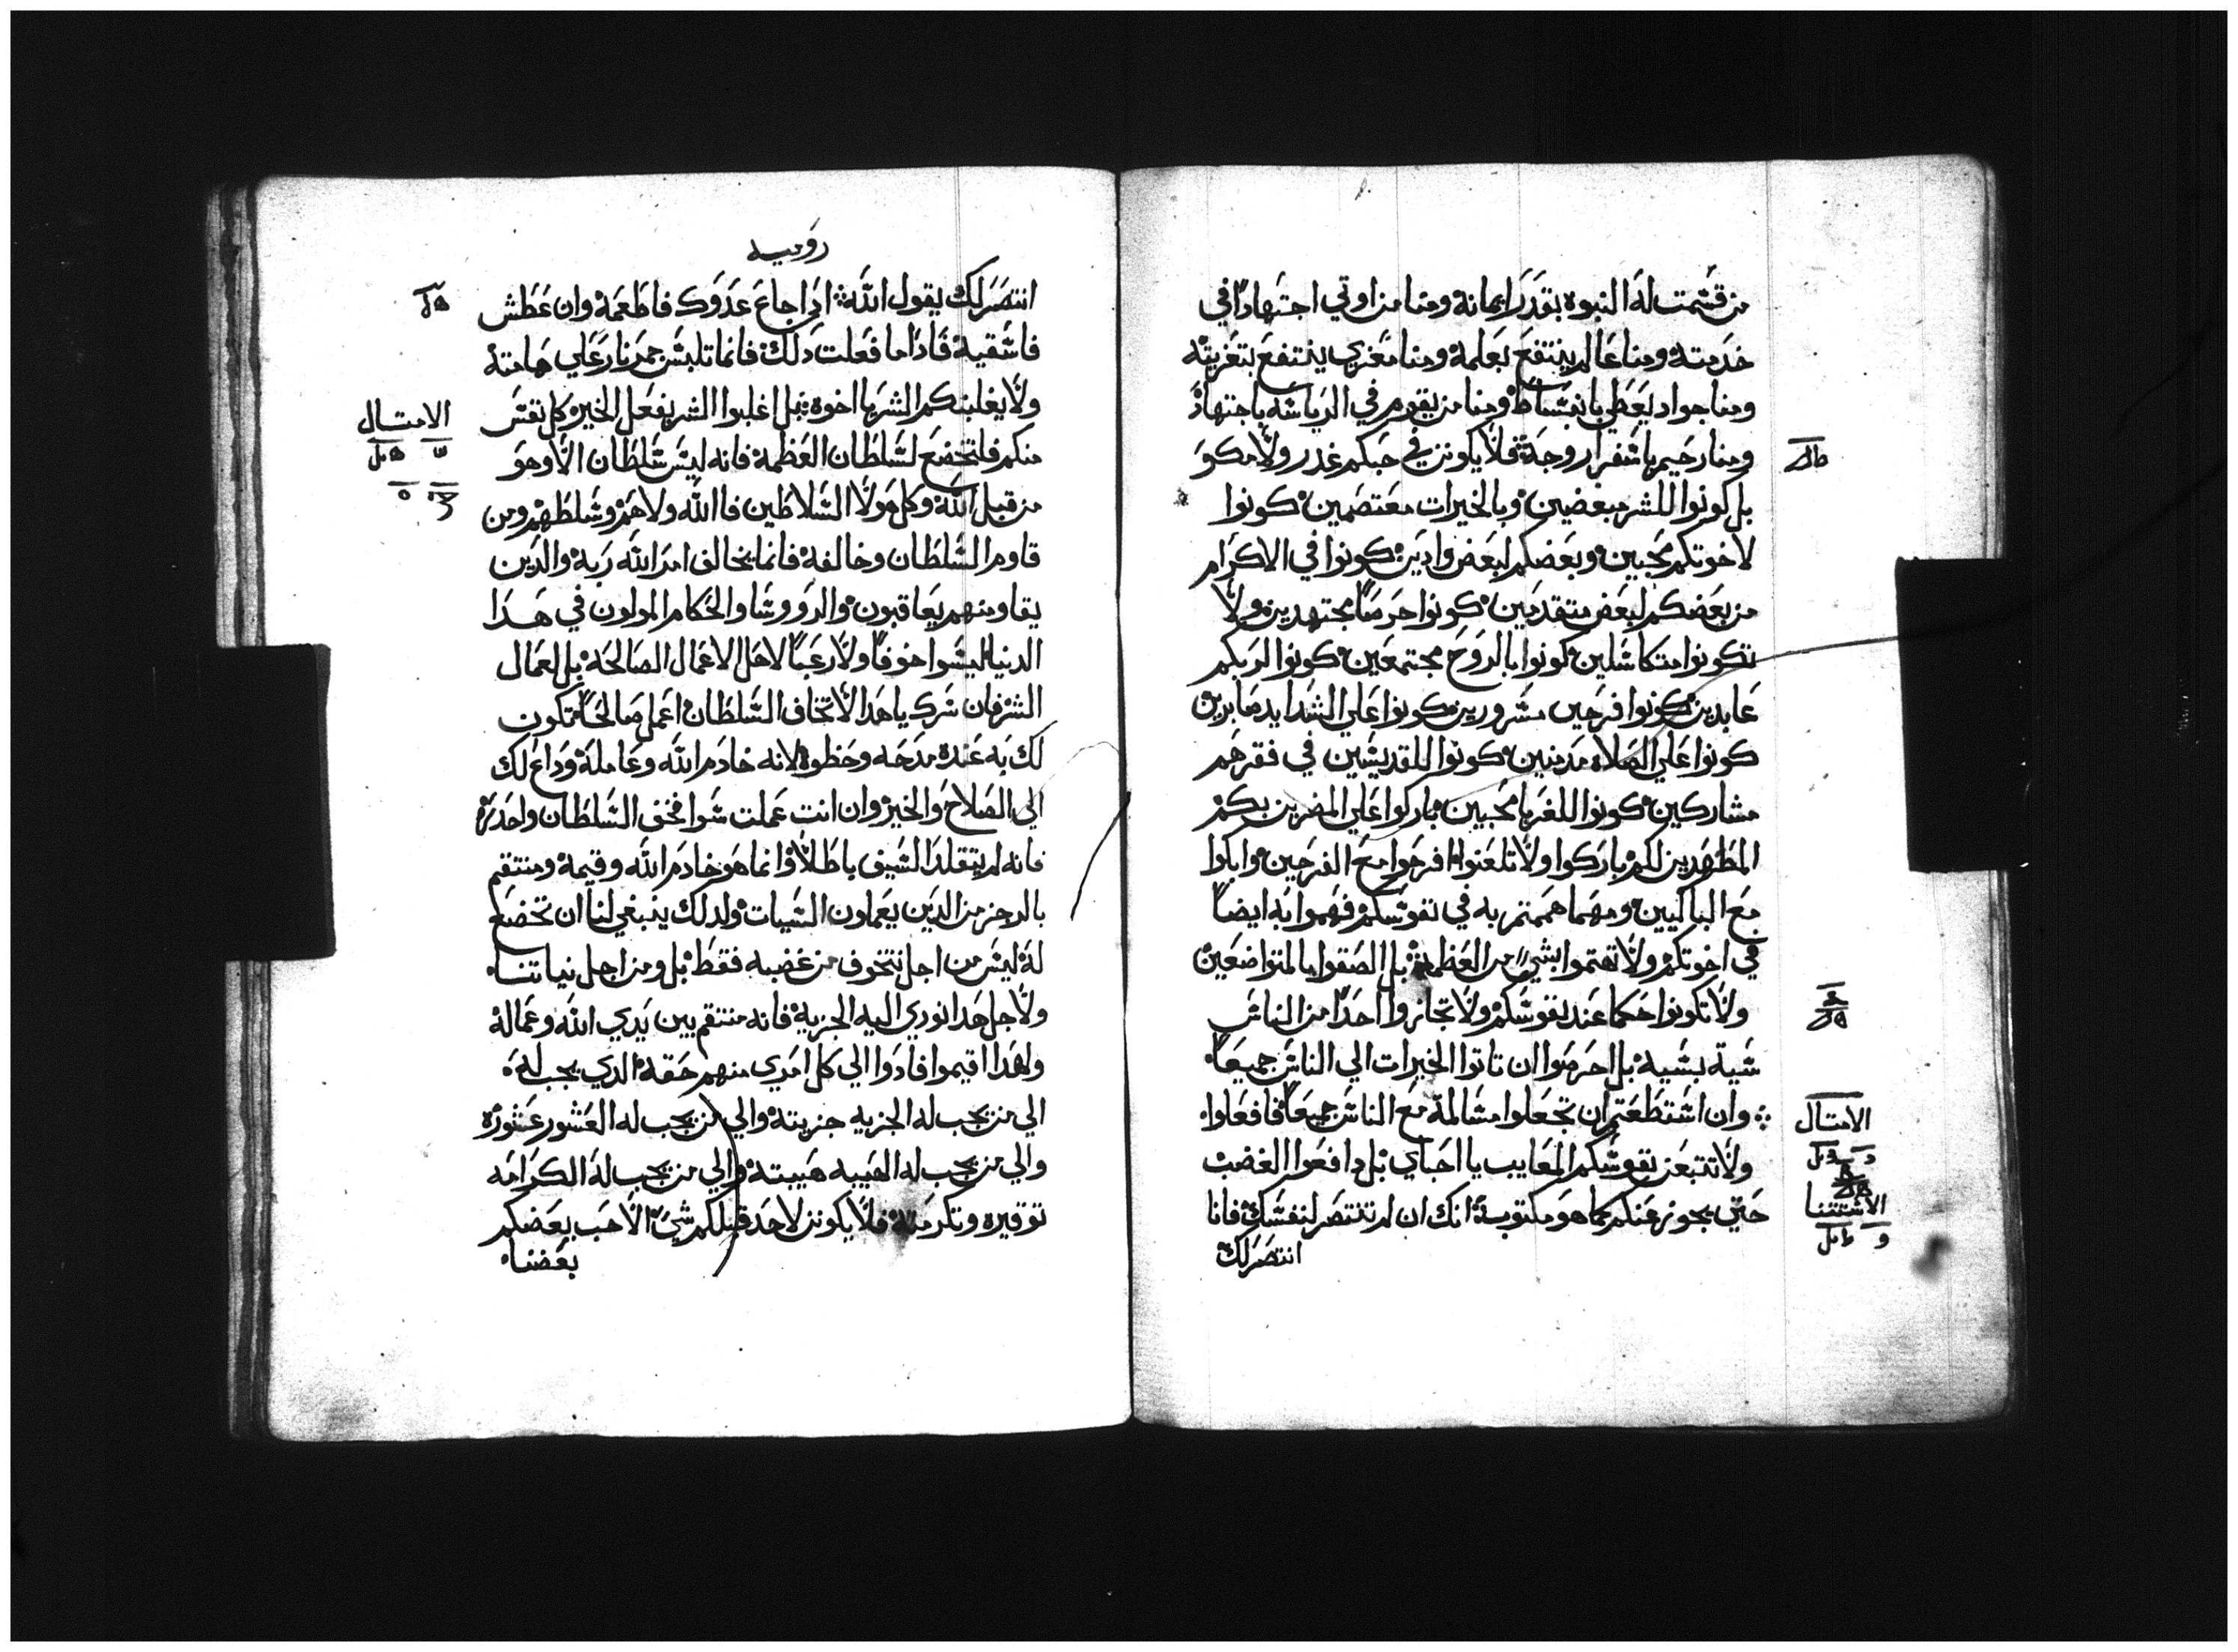 من قسمت له النبوه بقدر ايمانه ومنا من اوتي اجتهادًا في
خدمته ومنا عالم ينتفع بعلمه ومنا معزي ينتفع بتعزيته
ومنا جواد يعطي بانبساط ومنا من يقوم في الرياسه باجتهاد
ومنا رحيم باسفرار وجه فلا يكونن في حبكم غدر ولا مكو
بل كونوا للشر مبغضين وبالخيرات معتصمين كونوا
لاخوتكم محبين وبعضكم لبعض وادين كونوا في الاكرام
من بعضكم لبعض متقدمين كونوا حرصًا مجتهدين ولا
تكونوا متكاسلين كونوا بالروح مجتمعين كونوا لربكم
عابدين كونوا فرحين مسرورين كونوا علي الشدايد صابرين
كونوا علي الصلاه مدمنين كونوا للقديسين في فقرهم
مشاركين كونوا للغربا محبين باركوا علي المضرين بكم
المطهدين لكم باركوا ولا تلعنوا افرحوا مع الفرحين وابكوا
مع الباكيين ومهما هممتم به في نفوسكم فهموا به ايضًا
في اخوتكم ولا تهتموا بشي من العظمه بل الصقوا بالمتواضعين
ولا تكونوا حكما عند نفوسكم ولا تجازوا احدًا من الناس
سية بسيه بل احرصوا ان تاتوا الخيرات الي الناس جميعًا
وان استطعتم ان تجعلوا مسالمة مع الناس جميعًا فافعلوا
ولا تتبعن نفوسكم المعايب يا احباي بل دافعوا الغضب
حتي يجوز عنكم كما هو مكتوب انك ان لم تنتصر لنفسك فانا
انتصر لك
الامتال
الاستتنا
روميه
انتصر لك يقول الله ادا جاع عدوك فاطعمه وان عطش
فاسقيه فادا ما فعلت دلك فانما تلبس جمر نار علي هامته
ولا يغلبنكم الشر يا اخوة بل اغلبوا الشر بفعل الخير كل نفس
منكم فلتخضع لسلطان العظمه فانه ليس سلطان الا وهو
من قبل الله وكل هولا السلاطين فالله ولاهم وسلطهم ومن
قاوم السلطان وخالفه فانما يخالف امر الله ربه والدين
يقاومنهم يعاقبون والروسا والحكام المولون في هدا
الدنيا ليسوا خوفًا ولا رعبًا لاهل الاعمال الصالحه بل لعمال
الشر فان سرك يا هدا الا تخاف السلطان اعمل صالحًا تكون
لك به عنده مدحه وحظوة لانه خادم الله وعامله وداع لك
الي الصلاح والخير وان انت عملت سوا فخف السلطان واحدره
فانه لم يتقلد السيف باطلًا وانما هو خادم الله وقيمه ومنتقم
بالرجز من الدين يعملون السيات ولدلك ينبغي لنا ان نخضع
له ليس من اجل نتخوف من غضبه فقط بل ومن اجل نياتنا
ولاجل هدا نودي اليه الجزية فانه منتقم بين يدي الله وعماله
ولهدا اقيموا فادوا الي كل امري منهم حقه الدي يجب له
الي من يجب له الجزيه جزيته والي من يجب له العشور عشوره
والي من يجب له الهيبه هيبته والي من يجب له الكرامه
توقيره وتكرمته فلا يكونن لاحد قبلكم شي الا حب بعضكم
بعضنا
الامتال